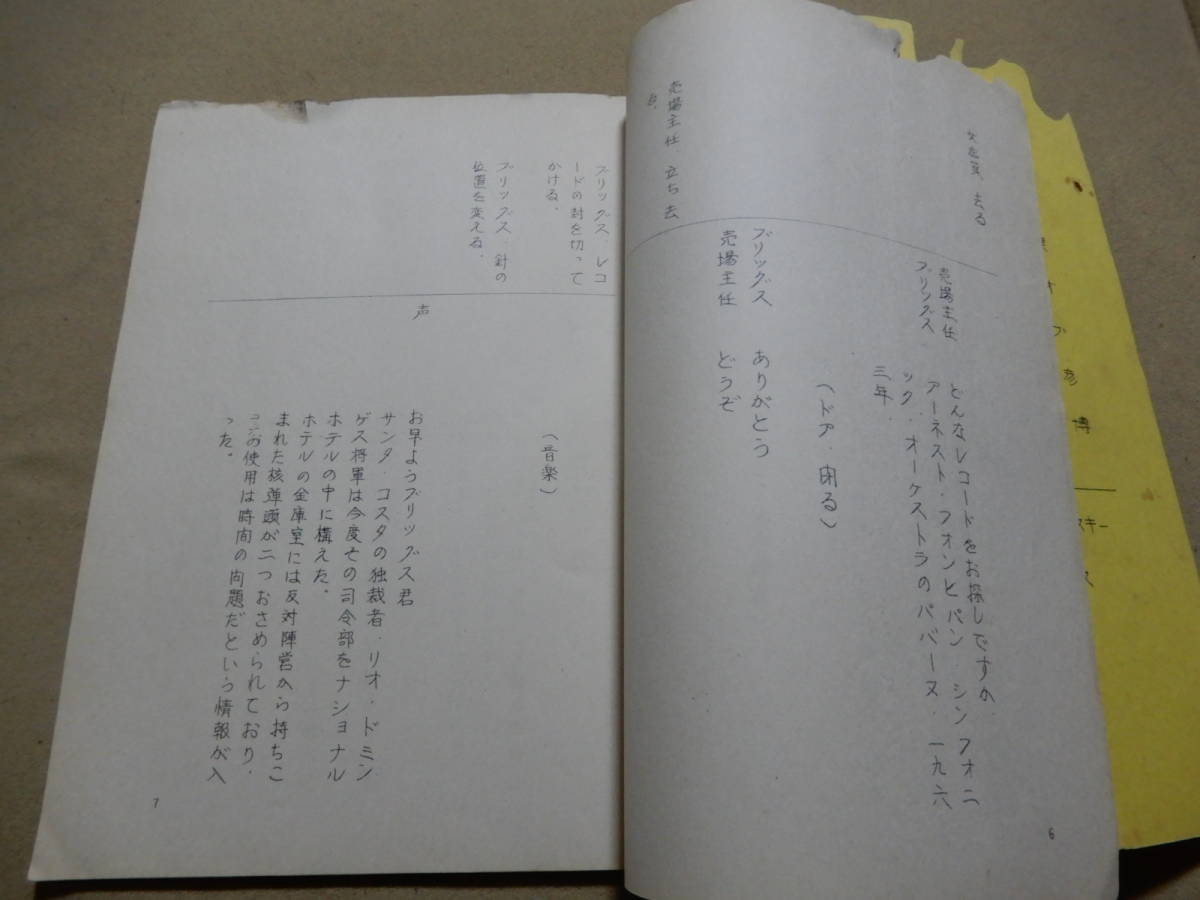 去る
売場主任
ブリッグス
どんなレコードをお探しですか
アーネスト・フォンヒバン・シンフォニ
ック・オーケストラのパバーヌ・一九六
三年.
(ドア・閉る)
売場主任.立ち去
る.
ブリッグス ありがとう
売場主任 どうぞ
6
ブリッグス.レコ
ードの封を切って
かける.
(音楽)
ブリッグス.針の
位置を変える.
声
お早ようブリッグス君
サンタ コスタの独裁者・リオ・ドミン
ゲス将軍は今度その司令部をナショナル
ホテルの中に構えた。
ホテルの金庫室には反対陣営から持ちこ
まれた核弾頭が二つおさめられており・
の使用は時間の問題だという情報が入
った。
7
彦
博
スキー